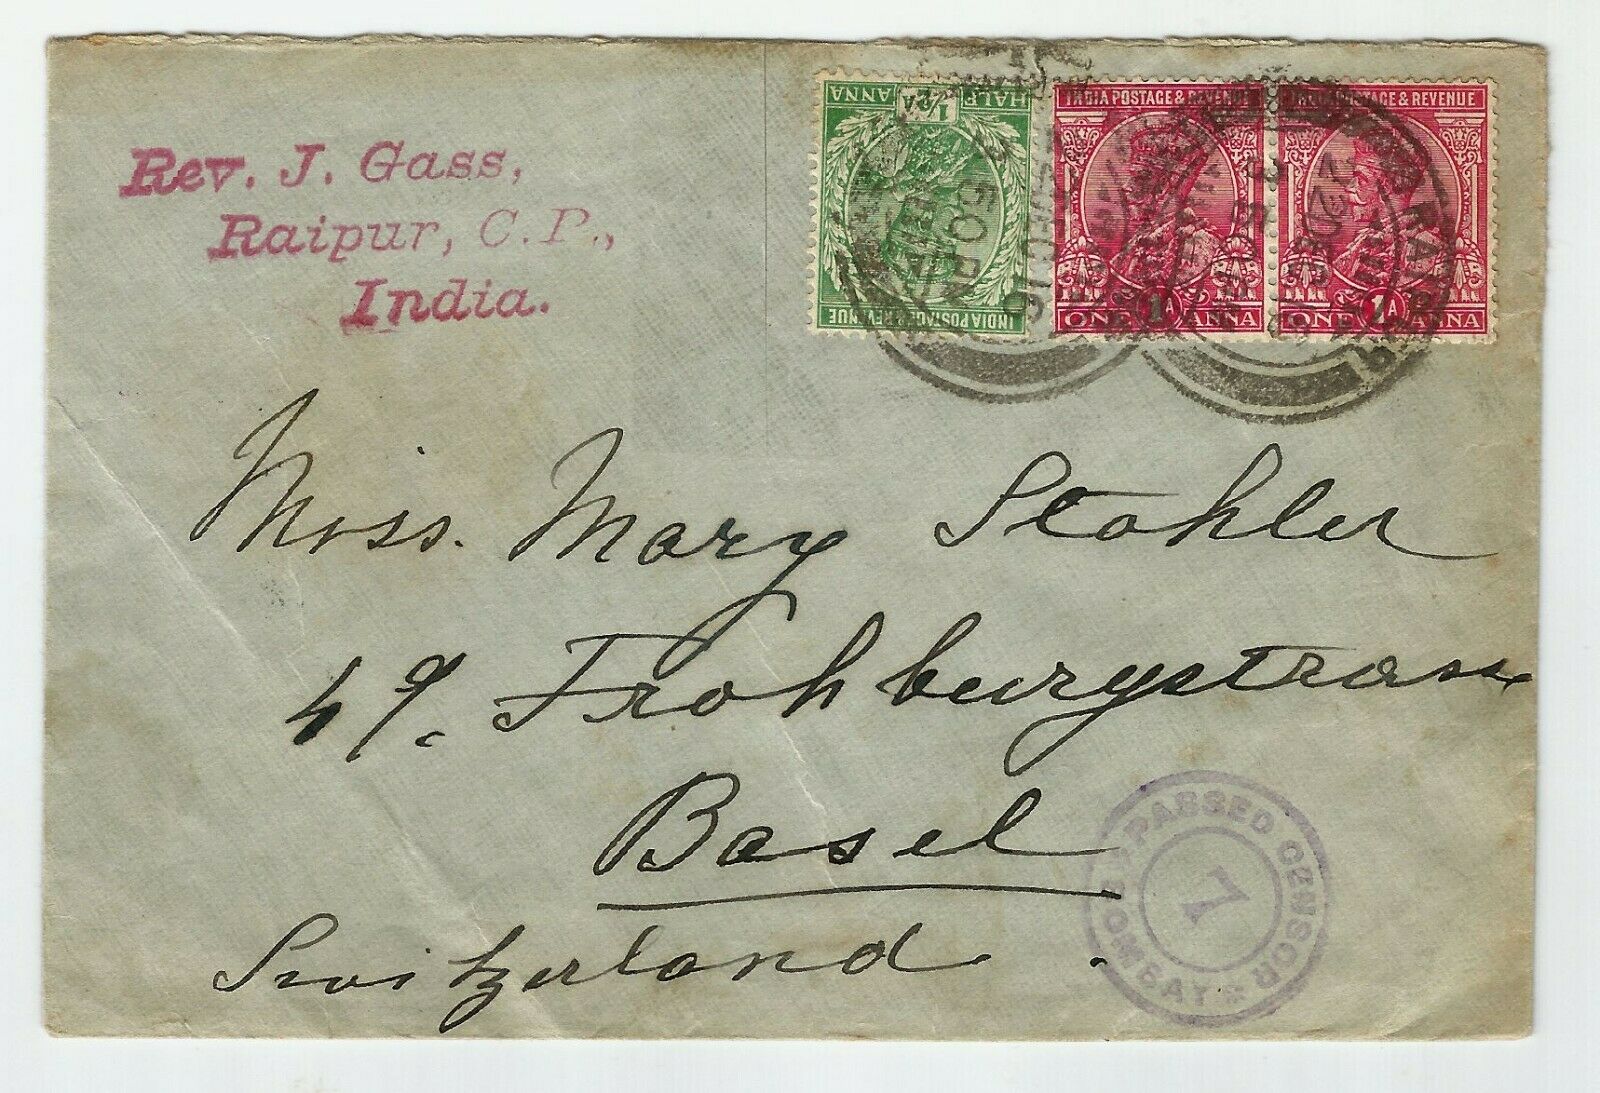 Rev. J. Gass,
Raipur, C.P.,
India.
HALF ANNA
1/2A
INDIA POSTAGE & REVENUE
INDIA POSTAGE & REVENUE
1A
ONE ANNA
POSTAGE & REVENUE
1A
ONE ANNA
RAIPUR
DEC 16
Miss. Mary Stohler
49. Frohburgstrasse
Basel
Switzerland.
PASSED CENSOR
BOMBAY
7